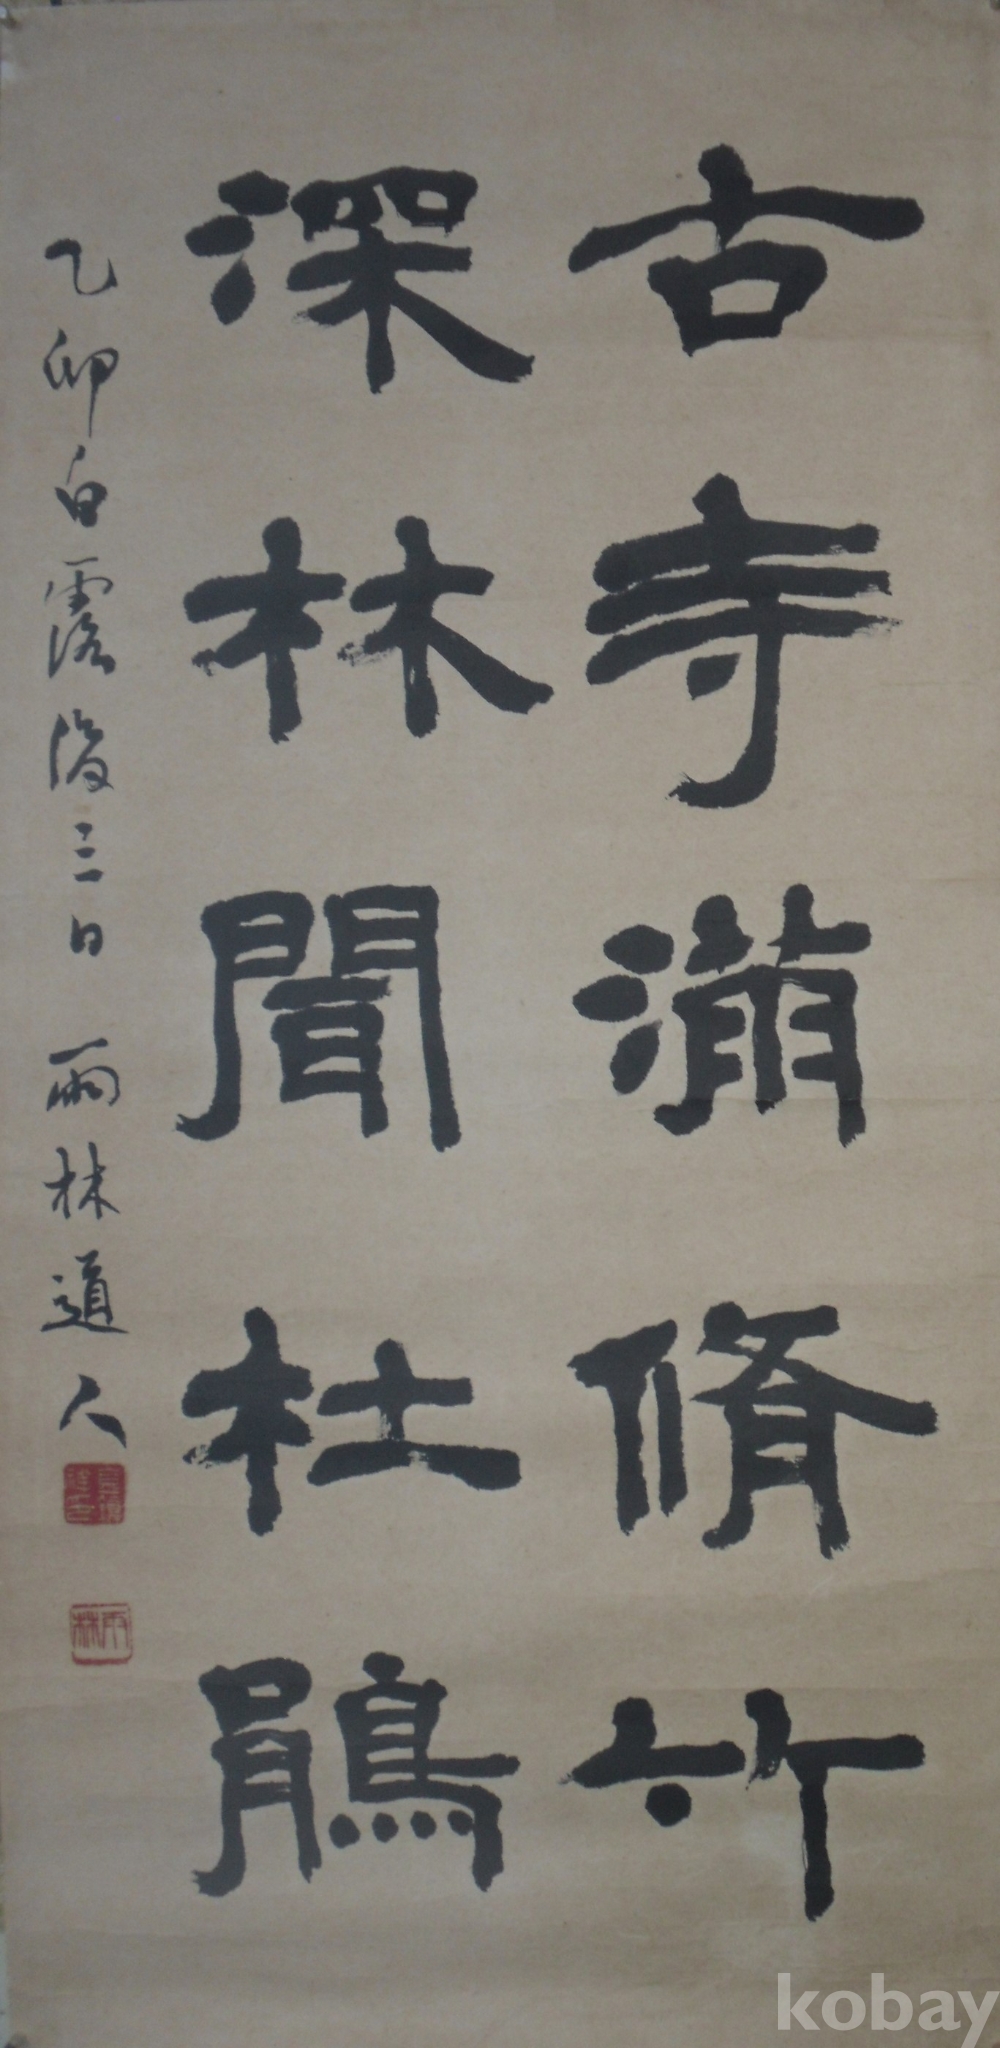 古寺滿脩竹
深林聞杜鵑
乙卯白露後三日 雨林道人
雨林
kobay